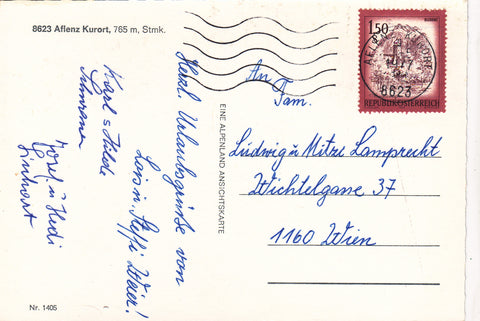 8623 Aflenz Kurort, 765 m, Stmk.
Herzl. Urlaubsgrüße von
Lois u. Steffi Weier!
Karl s Hilde
Josef u. Hedi
Einhart
Nr. 1405
EINE ALPENLAND ANSICHTSKARTE
1.50
REPUBLIK ÖSTERREICH
AFLENZ KURORT
8623
An
Fam.
Ludwig u Mitzi Lamprecht
Wichtelgasse 37
1160 Wien